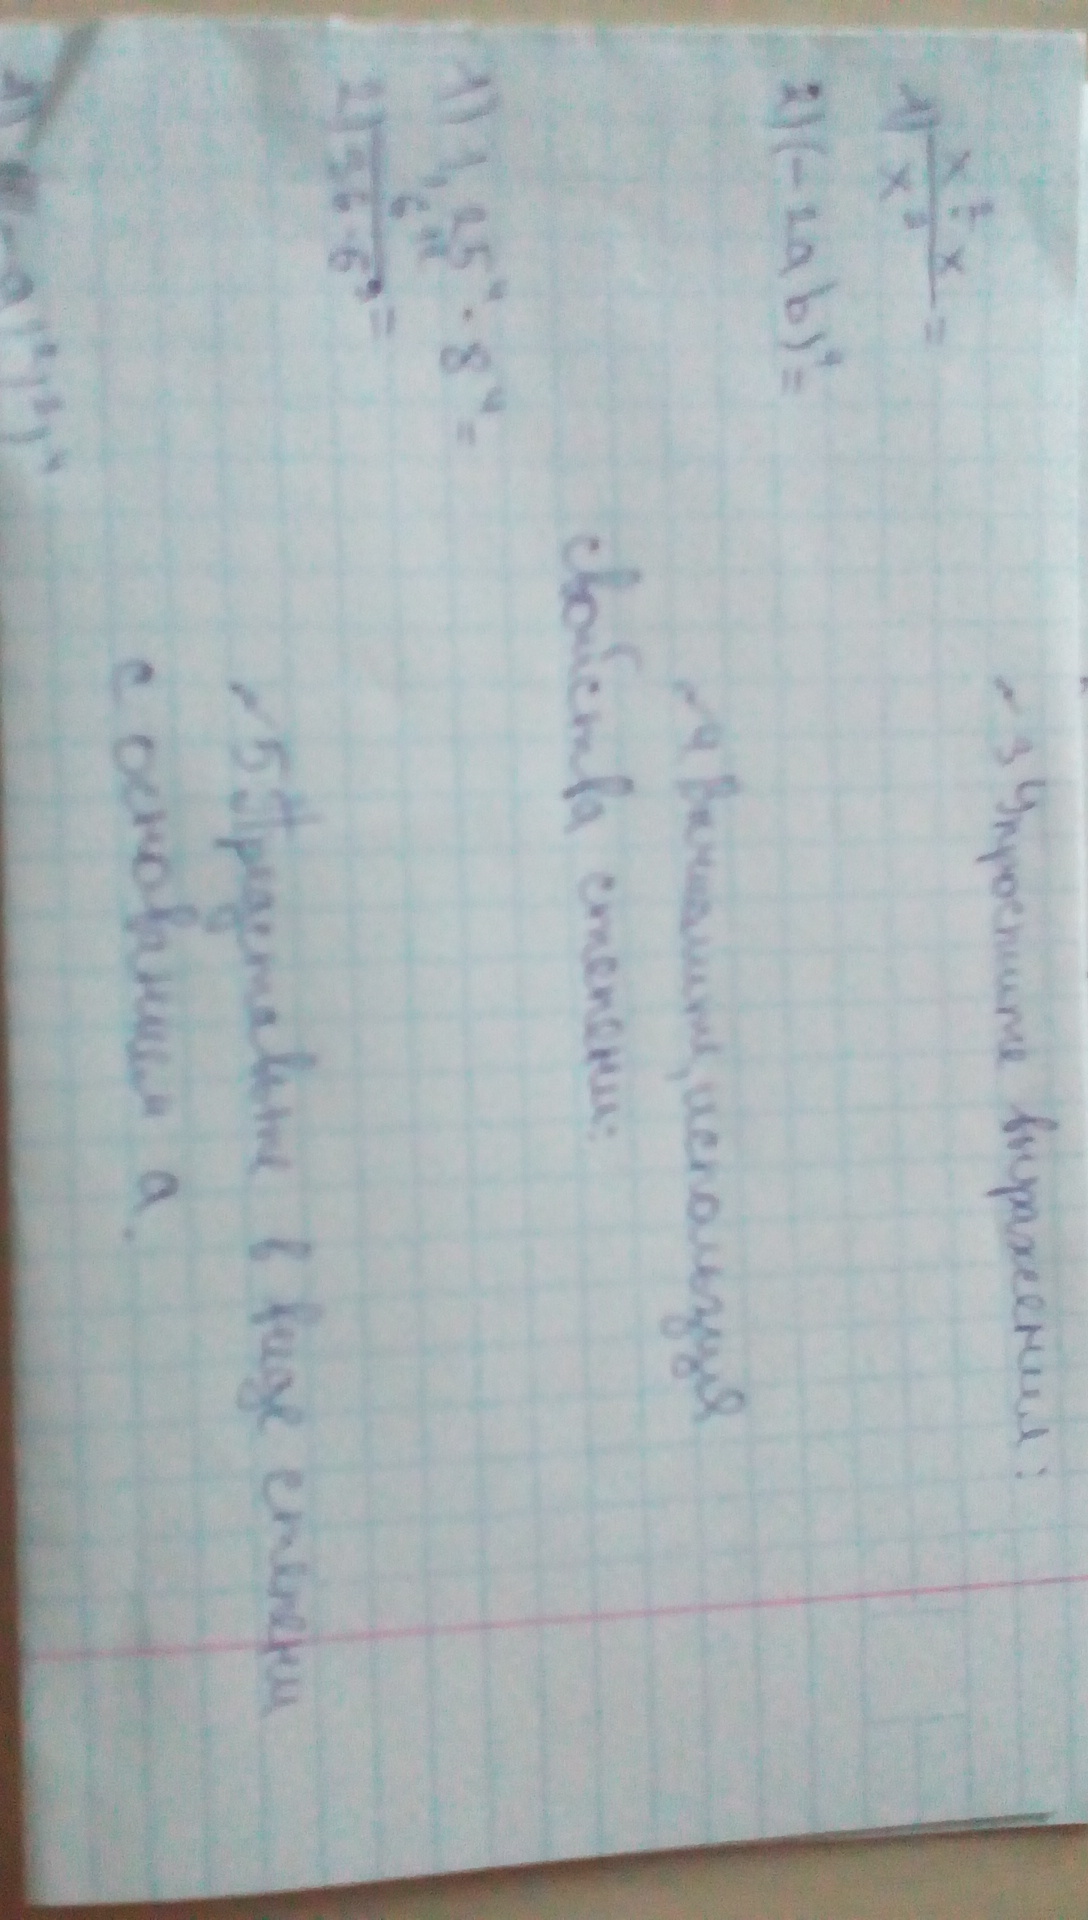 3 Упростите выражения:
1) x⁷ · x / x³ =
2) (-2ab)⁴ =
4 Вычислите, используя
свойства степени:
1) 1,25⁴ · 8⁴ =
2) 6¹¹ / 36 · 6⁹ =
5 Представьте в виде степени
с основанием a.